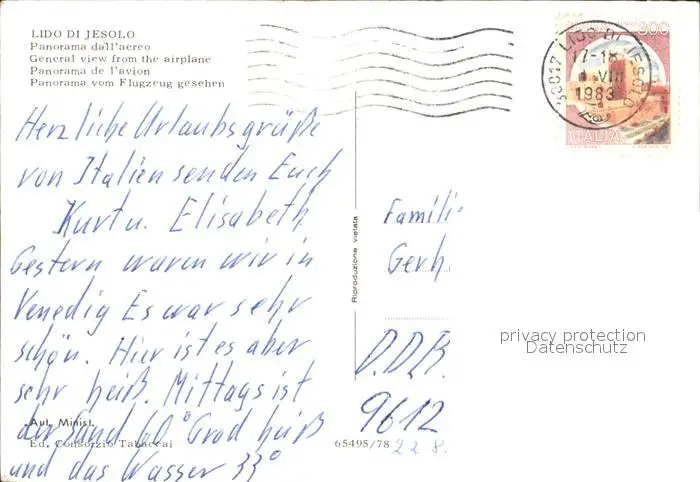 LIDO DI JESOLO
Panorama dall'aereo
General view from the airplane
Panorama de l'avion
Panorama vom Flugzeug gesehen
Herzliche Urlaubsgrüße
von Italien senden Euch
Kurt u. Elisabeth
Gestern waren wir in
Venedig Es war sehr
schön. Hier ist es aber
sehr heiß. Mittags ist
der Sand 60° Grad heiß
und das Wasser 33°
Aut. Minist.
Ed. Consorzio Tabaccai
65495/78
Riproduzione vietata
300
ITALIA
30017 LIDO DI JESOLO
17-18
1 VIII
1983
Famili
Gerh
D.D.R.
9612
22 8.
privacy protection
Datenschutz